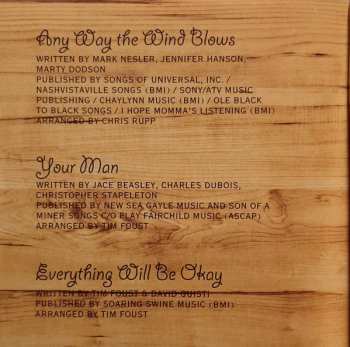 Any Way the Wind Blows
WRITTEN BY MARK NESLER, JENNIFER HANSON,
MARTY DODSON
PUBLISHED BY SONGS OF UNIVERSAL, INC. /
NASHVISTAVILLE SONGS (BMI) / SONY/ATV MUSIC
PUBLISHING / CHAYLYNN MUSIC (BMI) / OLE BLACK
TO BLACK SONGS / I HOPE MOMMA'S LISTENING (BMI)
ARRANGED BY CHRIS RUPP
Your Man
WRITTEN BY JACE BEASLEY, CHARLES DUBOIS,
CHRISTOPHER STAPELETON
PUBLISHED BY NEW SEA GAYLE MUSIC AND SON OF A
MINER SONGS C/O PLAY FAIRCHILD MUSIC (ASCAP)
ARRANGED BY TIM FOUST
Everything Will Be Okay
WRITTEN BY TIM FOUST & DAVID GUISTI
PUBLISHED BY SOARING SWINE MUSIC (BMI)
ARRANGED BY TIM FOUST